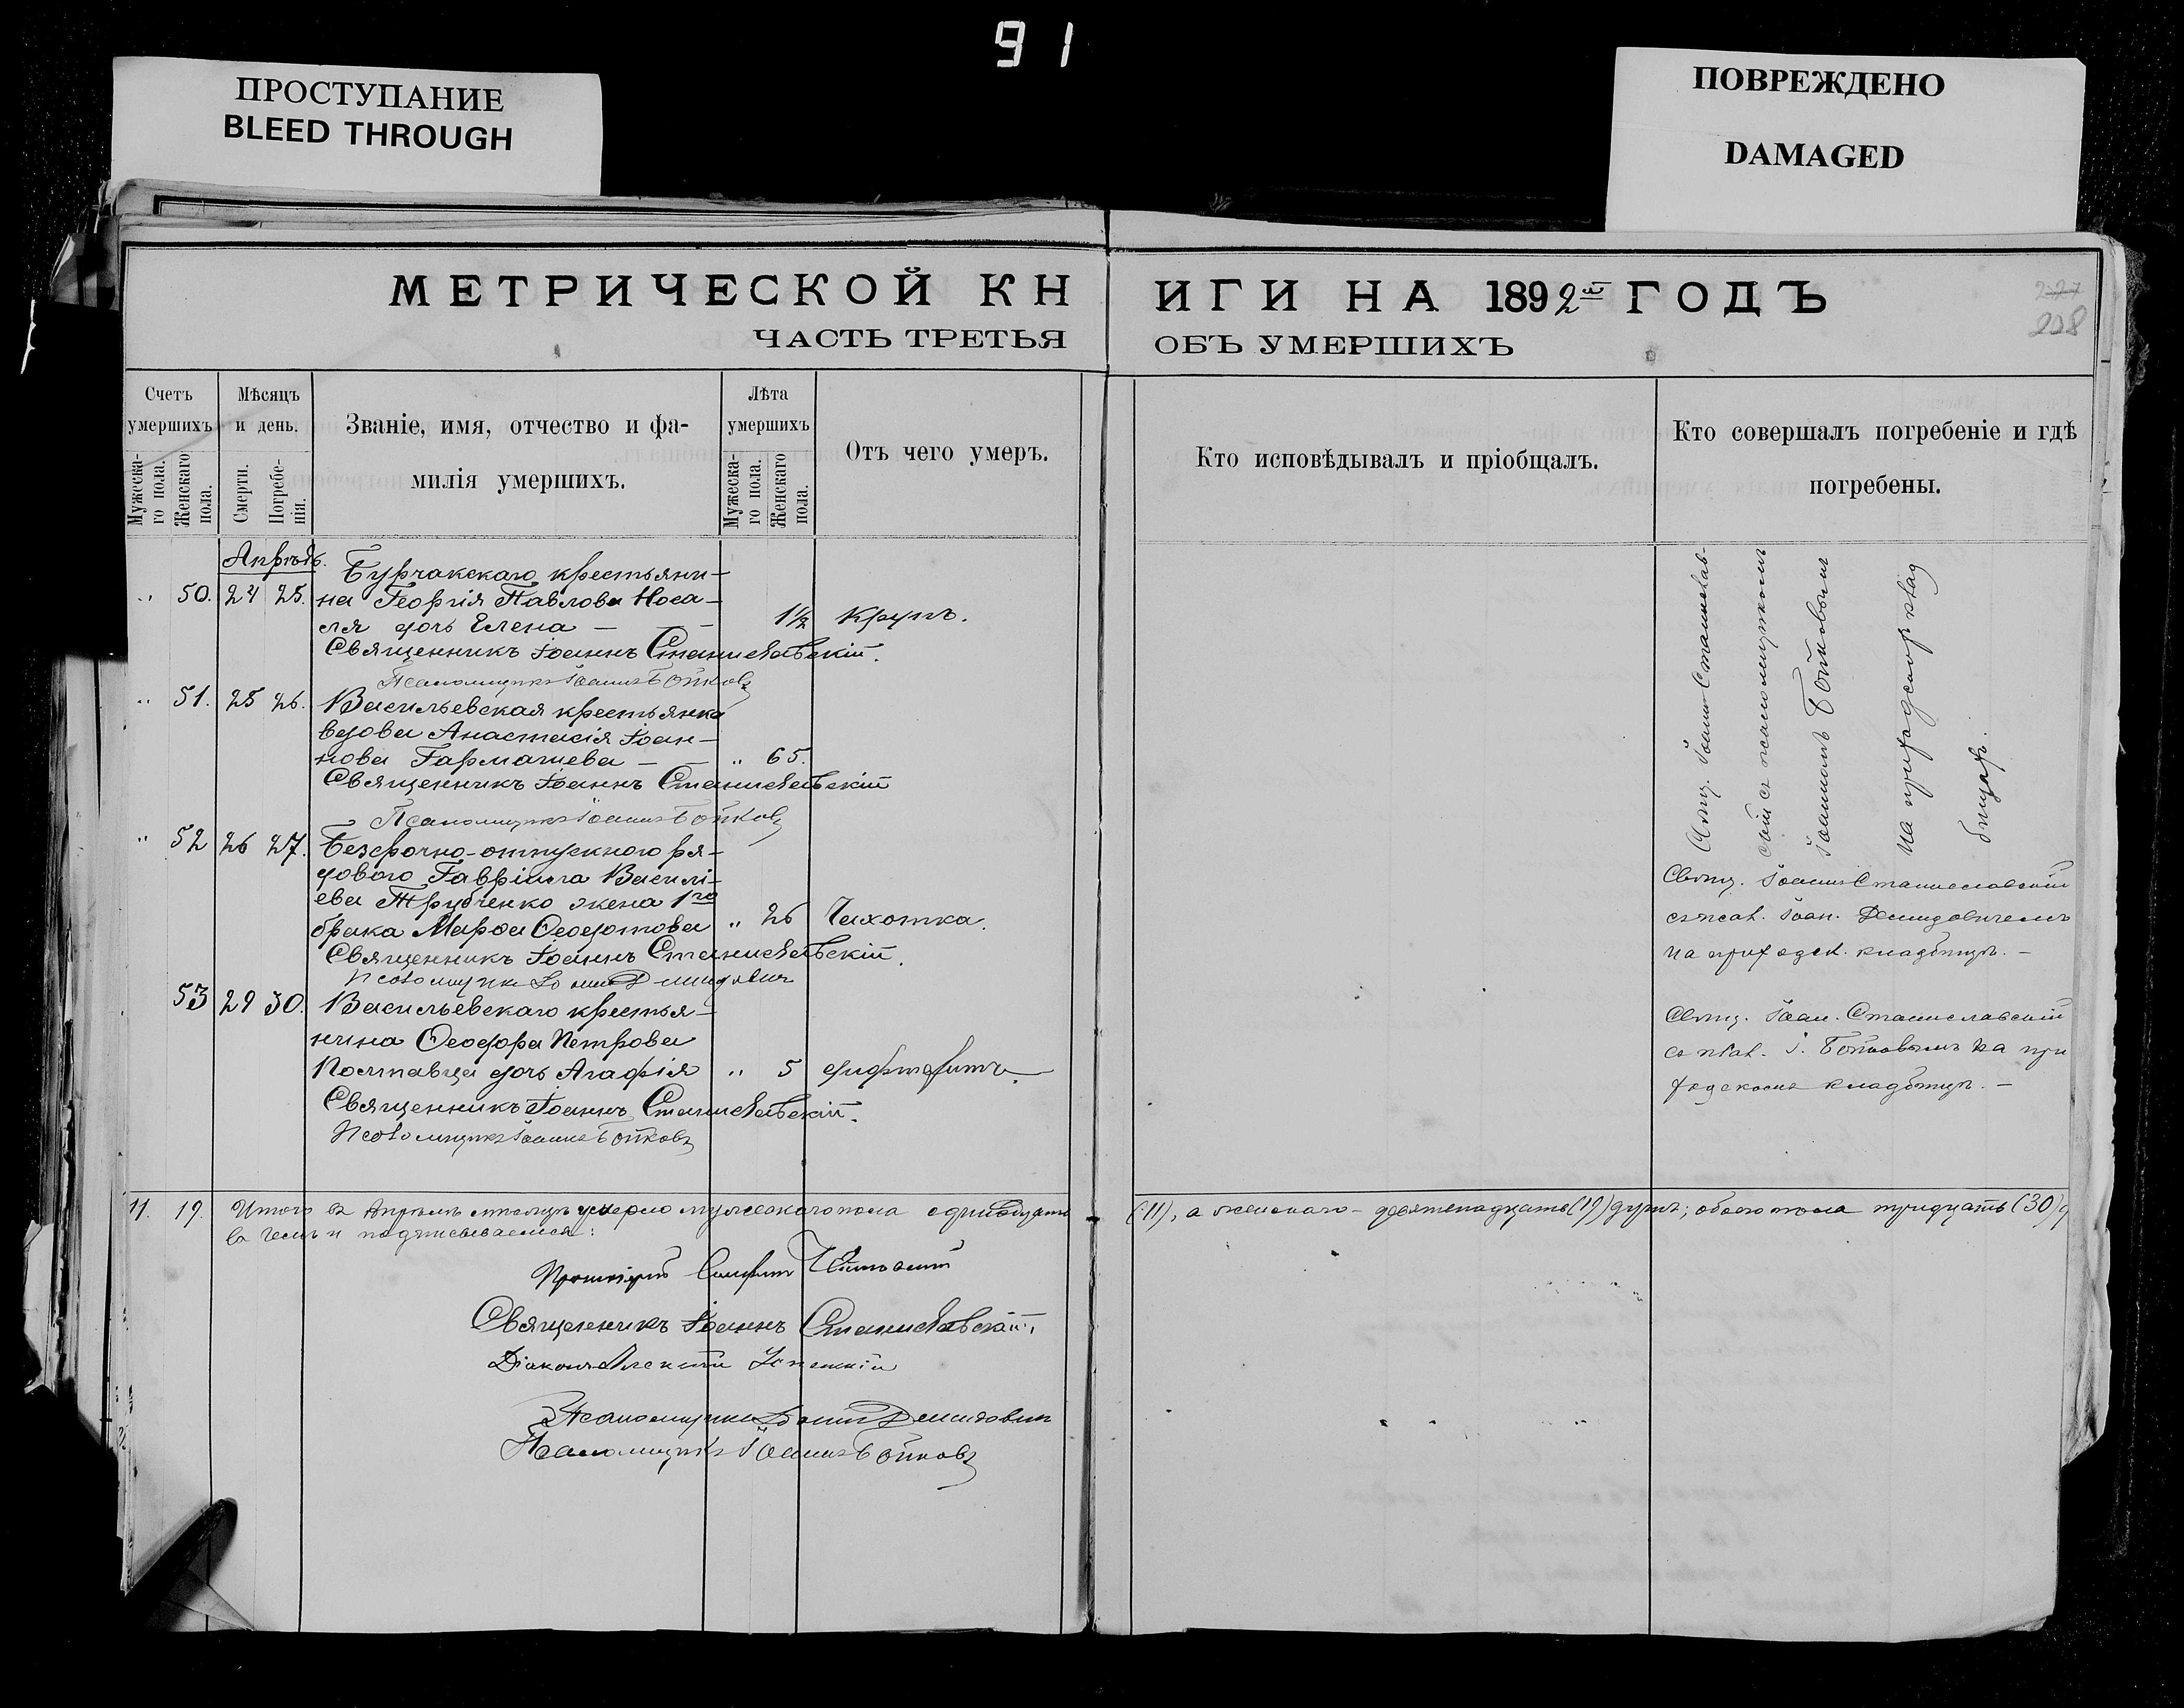 91
ПРОСТУПАНИЕ
BLEED THROUGH
ПОВРЕЖДЕНО
DAMAGED
МЕТРИЧЕСКОЙ КНИГИ НА 1892й ГОДЪ
227
228
ЧАСТЬ ТРЕТЬЯ ОБЪ УМЕРШИХЪ
Счетъ умершихъ
Мужеска-го пола.
Женскаго пола.
Мѣсяцъ и день.
Смерти.
Погребе-нія.
Званіе, имя, отчество и фа-
милія умершихъ.
Лѣта умершихъ
Мужеска-го пола.
Женскаго пола.
Отъ чего умеръ.
Кто исповѣдывалъ и пріобщалъ.
Кто совершалъ погребеніе и гдѣ
погребены.
Апрѣль.
Бурчакскаго крестьяни-
" 50. 24 25. на Георгія Павлова Носа-
ля дочь Елена — — 1½ Крупъ.
Священникъ Іоаннъ Станиславскій.
Псаломщикъ Іоаннъ Бойковъ
" 51. 25 26. Васильевская крестьянка
вдова Анастасія Іоан-
нова Гармашева — — " 65.
Священникъ Іоаннъ Станиславскій
Псаломщикъ Іоаннъ Бойковъ
Свящ. Іоаннъ Станислав-
скій съ псаломщикомъ
Іоанномъ Бойковымъ
на приходском клад
бищѣ.
" 52 26 27. Безсрочно-отпускного ря-
дового Гавріила Василі-
ева Трубченко жена 1го
брака Марѳа Ѳеодотова " 26 Чахотка.
Священникъ Іоаннъ Станиславскій.
Псаломщикъ Іоаннъ Демидовичъ
Свящ. Іоаннъ Станиславскій
съ псал. Іоан. Демидовичемъ
на приходск. кладбищѣ. —
53 29 30. Васильевскаго крестья-
нина Ѳеодора Петрова
Полтавца дочь Агафія " 5 дифтеритъ.
Священникъ Іоаннъ Станиславскій.
Псаломщикъ Іоаннъ Бойковъ
Свящ. Іоан. Станиславскій
съ псал. І. Бойковымъ на при
ходскомъ кладбищѣ. —
11. 19. Итого въ Апрѣлѣ мѣсяцѣ умерло мужескаго пола одинадцать (11), а женскаго — девятнадцать (19) душъ; обоего пола тридцать (30) д
въ чемъ и подписываемся:
Протоіерей
Священникъ Іоаннъ Станиславскій.
Діаконъ Алексій
Псаломщикъ Іоаннъ Демидовичъ
Псаломщикъ Іоаннъ Бойковъ